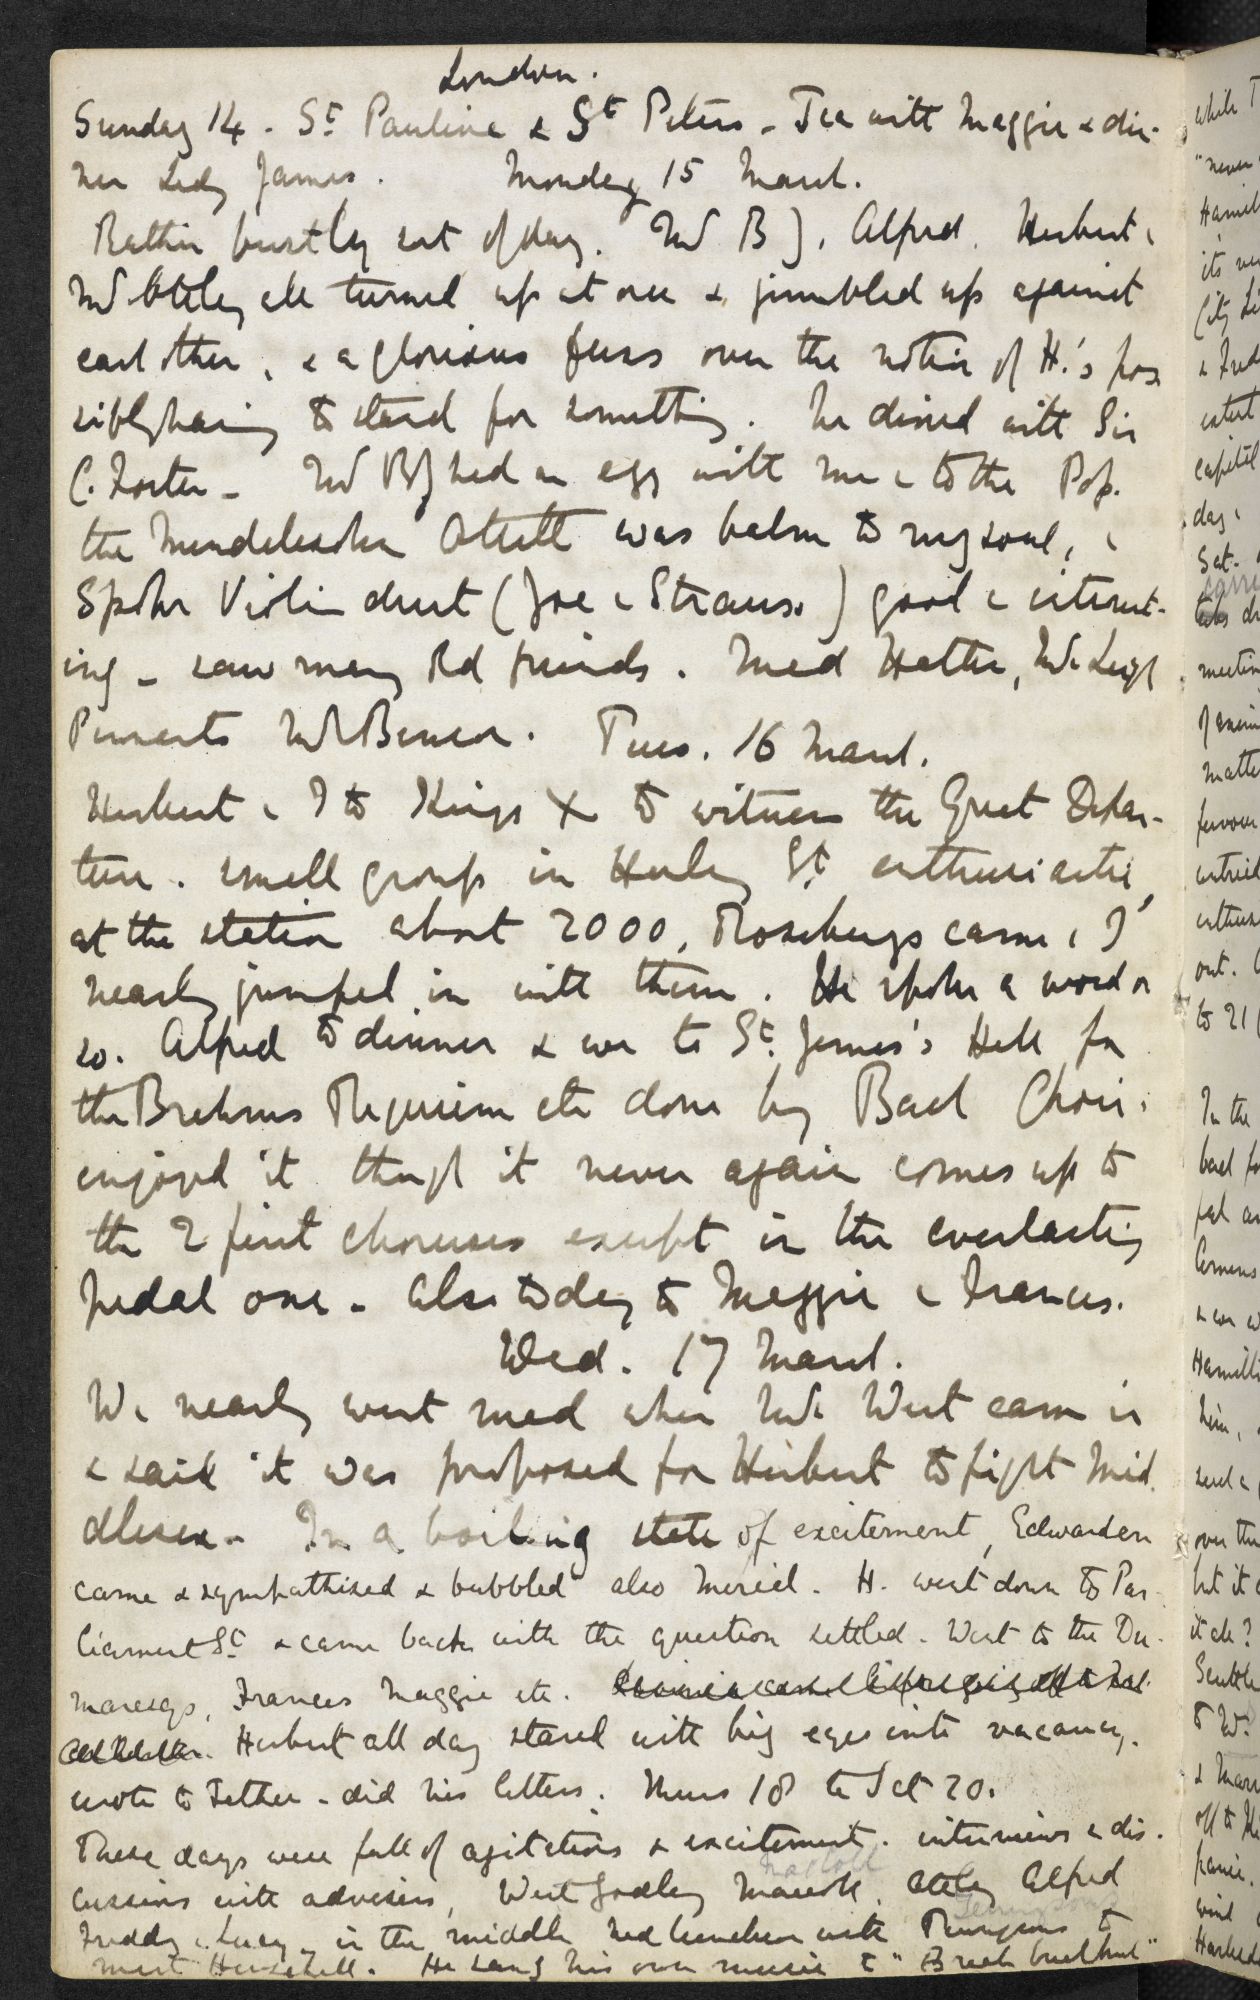 London.
Sunday 14 - St Pauline & St Peters - Tea with Maggie & din-
ner Lady James. Monday 15 March.
Rather bustley sort of day. Mrs B J, Alfred, Herbert &
Mr Ottley all turned up at once & jumbled up against
each other, & a glorious fuss over the notion of H.'s pos
sibly having to stand for something. he dined with Sir
C. Forster - Mrs BJ had an egg with me & to the Pop.
the Mendelssohn Ottett was balm to my soul, &
Spohr Violin duet (Joe & Strauss) good & interest-
ing - saw many old friends. Mad Hatter, Mr Leigh
Pennants Mrs Benson. Tues. 16 March.
Herbert & I to Kings X to witness the Great Depar-
ture. small group in Harley St enthusiastic,
at the station about 2000, Roseberys came & I
nearly jumped in with them. He spoke a word or
so. Alfred to dinner & we to St. James's Hall for
the Brahms Requiem etc done by Bach Choir.
enjoyed it though it never again comes up to
the 2 first choruses except in the everlasting
pedal one - Also today to Maggie & Frances.
Wed. 17 March.
We nearly went mad when Mr West came in
& said it was proposed for Herbert to fight Mid
dlesex - In a boiling state of excitement, Edwarden
came & sympathised & bubbled also Meriel. H. went down to Par
liament St & came back with the question settled. Went to the Du-
maresqs, Frances Maggie etc.
Herbert all day stared with big eyes into vacancy.
wrote to Father - did his letters. Thurs 18 to Sat 20.
These days were full of agitations & excitement. interviews & dis-
cussions with advisers, West Godley Marriott, Ottley Alfred
Freddy & Lucy - in the middle had luncheon with Tennysons to
meet Henschell. He sang his own music to "Break break"